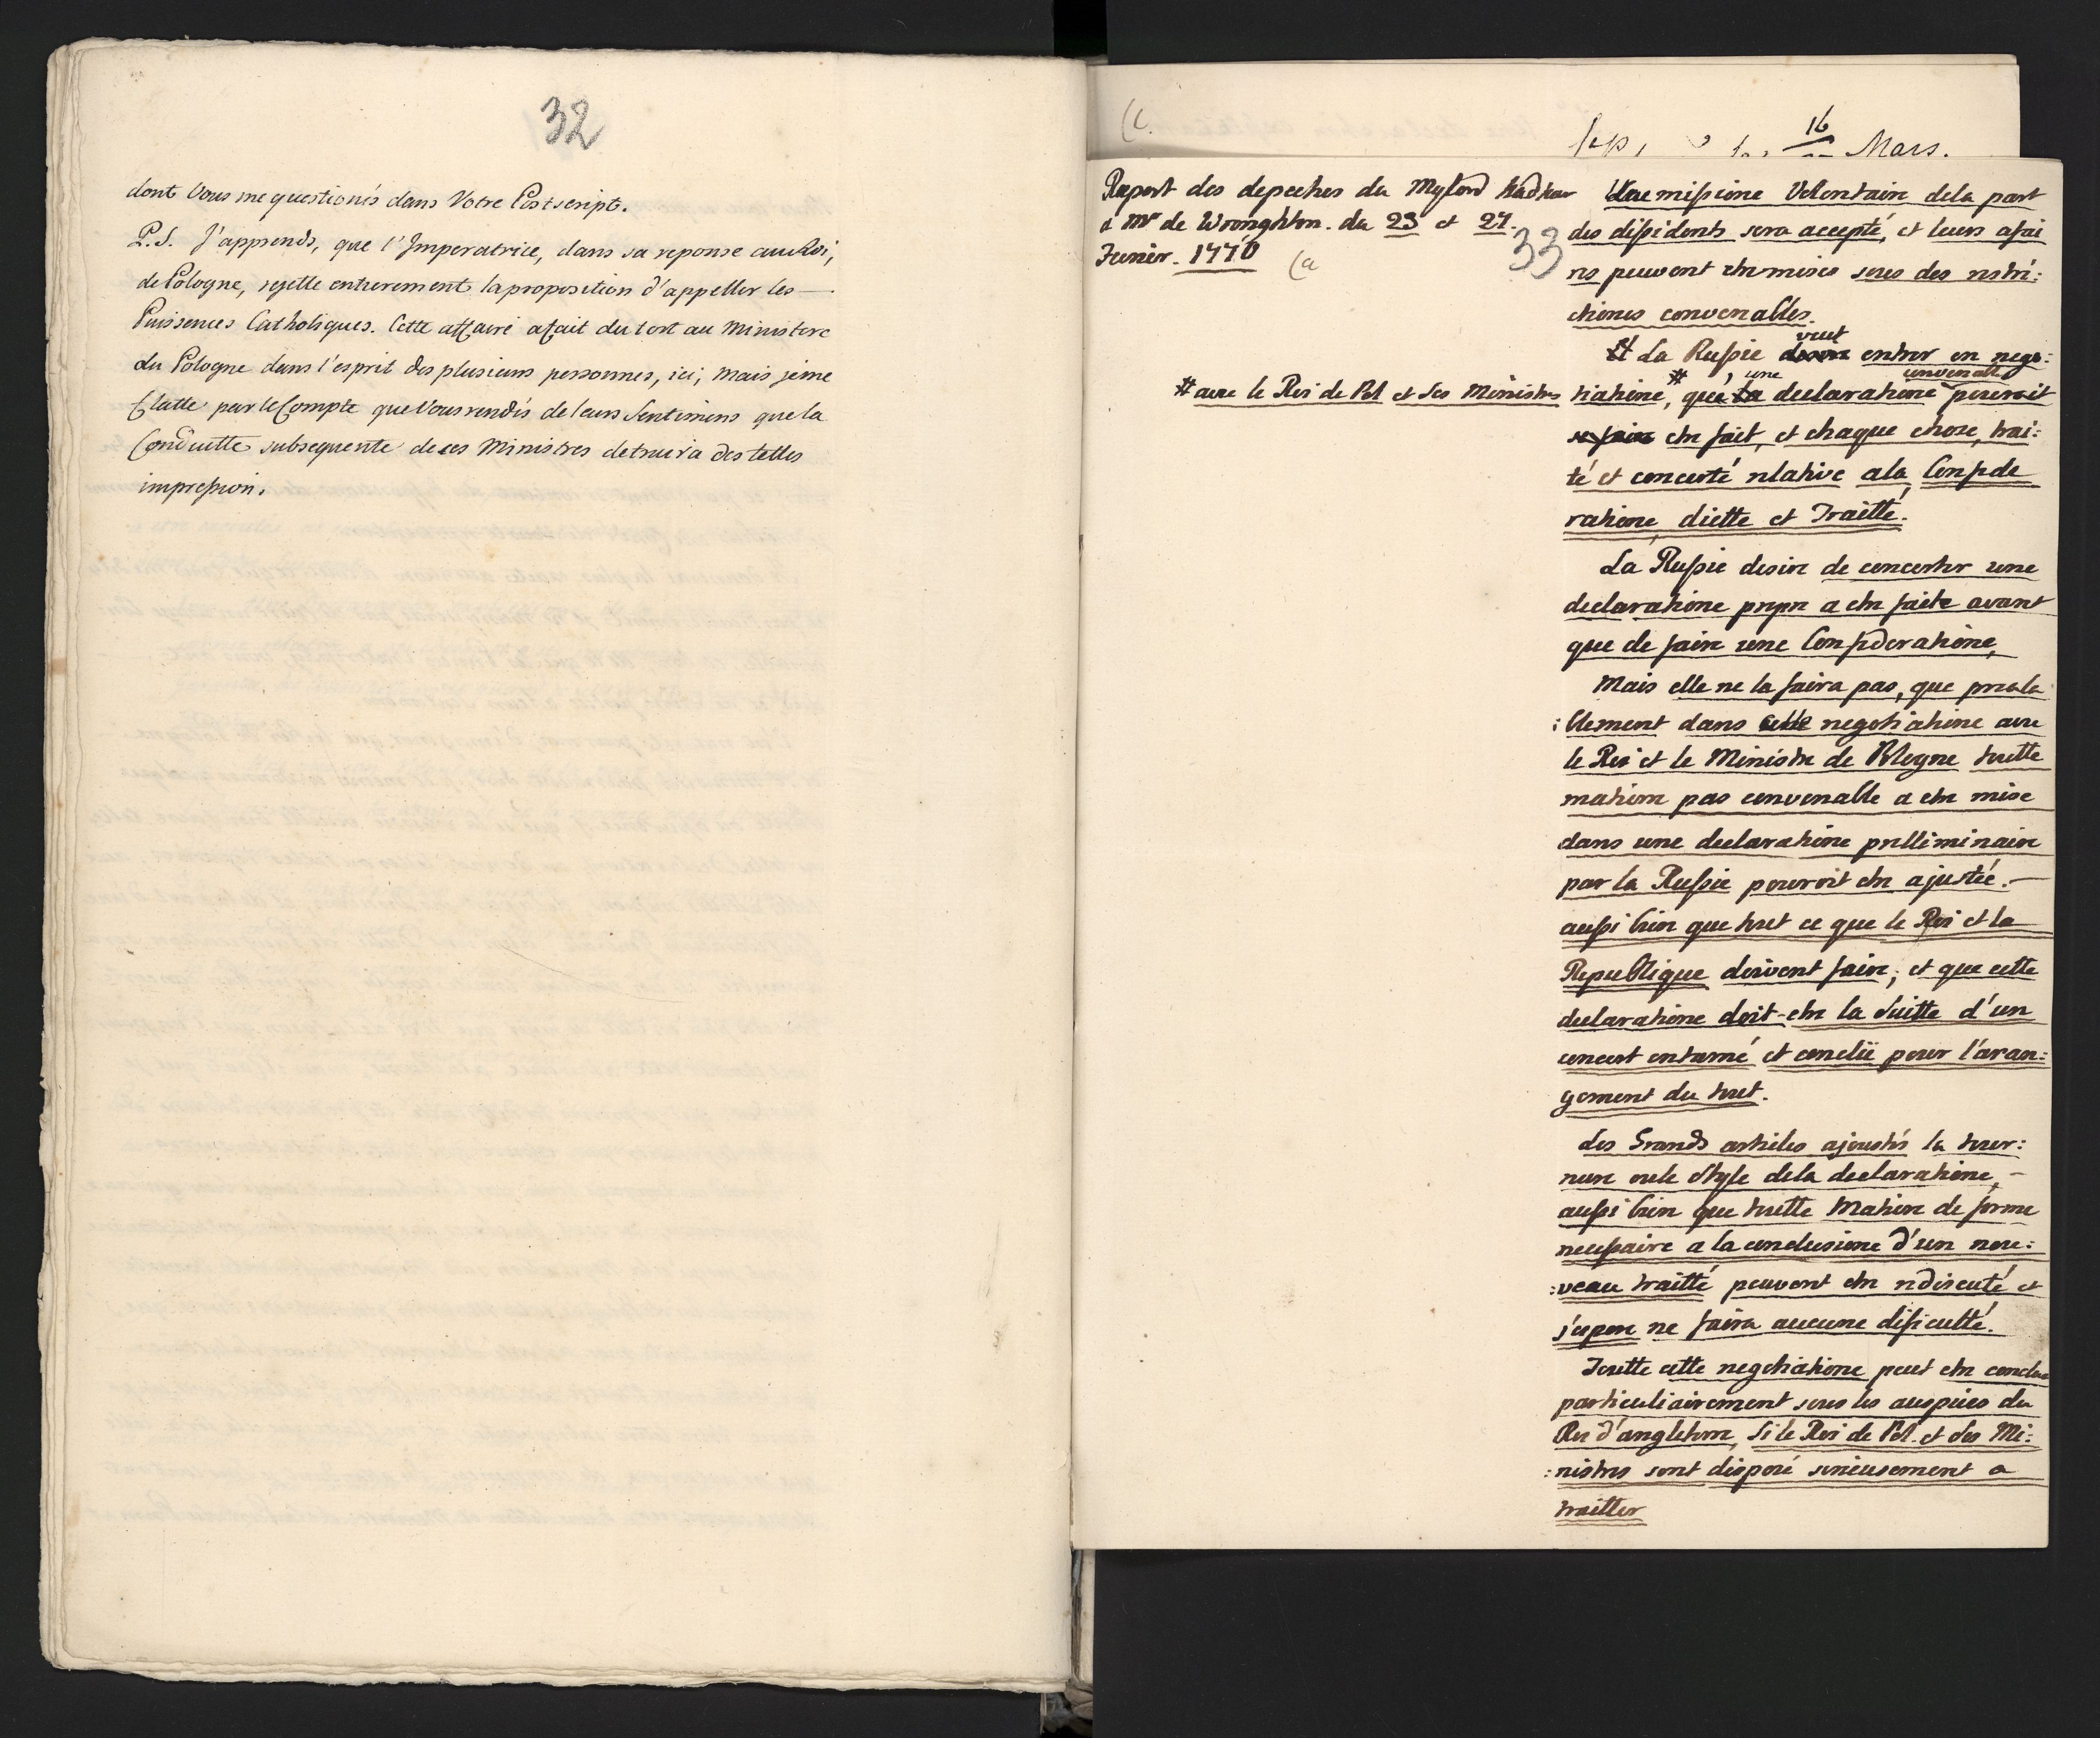 32
dont Vous me questionés dans Votre Postscript.
P.S. J'apprends, que l'Imperatrice, dans sa reponse au Roi,
de Pologne, rejette entierement la proposition d'appeller les —
Puissences Catholiques. Cette affaire a fait du tort au Ministere
du Pologne dans l'esprit des plusieurs personnes, ici; mais je me
flatte par le Compte que Vous rendés de leurs Sentimens que la
Conduitte subsequente de ces Ministres detruira des telles
impression.
(c.
16
Mars.
Raport des depeches du Mylord
à Mr de Wroughton. du 23 et 27.
Fevrier. 1770
(a
33
# avec le Roi de Pol et Ses Ministres
Une missione Volontaire dela part
des dissidents sera accepté, et leurs afai
res peuvent etre mises sous des restri:
ctiones convenables.
veut
La Russie entrer en nego:
# une convenable
tiatione, que declaratione pouroit
etre fait, et chaque chose, trai:
té et concerté relative a la Confede
ratione, diette et Traitté.
La Russie desire de concerter une
declaratione propre a etre faite avant
que de faire une Confederatione,
Mais elle ne la faira pas, que preala
:blement dans cette negotiatione avec
le Roi et le Ministre de Pologne toutte
matiere pas convenable a etre mise
dans une declaratione prelliminaire
par la Russie pouroit etre ajustée. —
aussi bien que tout ce que le Roi et la
Republique doivent faire; et que cette
declaratione doit-etre la Suitte d'un
concert entamé et conclü pour l'aran:
gement du tout.
Les Grands articles ajoustés la tour:
nure oule Style dela declaratione, —
aussi bien que toutte Matiere de forme
necessaire a la conclusione d'un nou:
:veau traitté peuvent etre rediscuté et
j'espere ne faira aucune dificulté.
Toutte cette negotiatione peut etre conclue
particuliairement sous les auspices du
Roi d'angleterre, Si le Roi de Pol. et Ses Mi:
:nistres sont disposé serieusement a
traitter